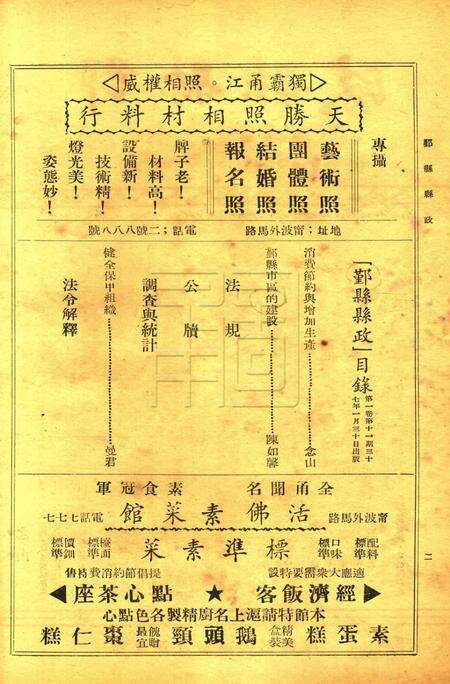 鄞縣縣政
二
獨霸甬江。照相權威
天勝照相材料行
專攝
藝術照
團體照
結婚照
報名照
牌子老！
材料高！
設備新！
技術精！
燈光美！
姿態妙！
地址；甯波外馬路
電話；二號八八八號
「鄞縣縣政」目錄
第一卷第十一期三十
七年一月三十日出版
消費節約與增加生產……念山
鄞縣市區的建設……陳如馨
法規
公牘
調查與統計
健全保甲組織……曼君
法令解釋
全甬聞名
素食冠軍
甯波外馬路
活佛素菜館
電話七七七
配料標準
口味標準
標準素菜
檯面標準
價鈿標準
適應大衆需要特設
提倡節約消費待售
經濟飯客
點心茶座
本館特請滬上名厨精製各色點心
素蛋糕
精美盒裝
鵝頭頸
餽贈最宜
棗仁糕